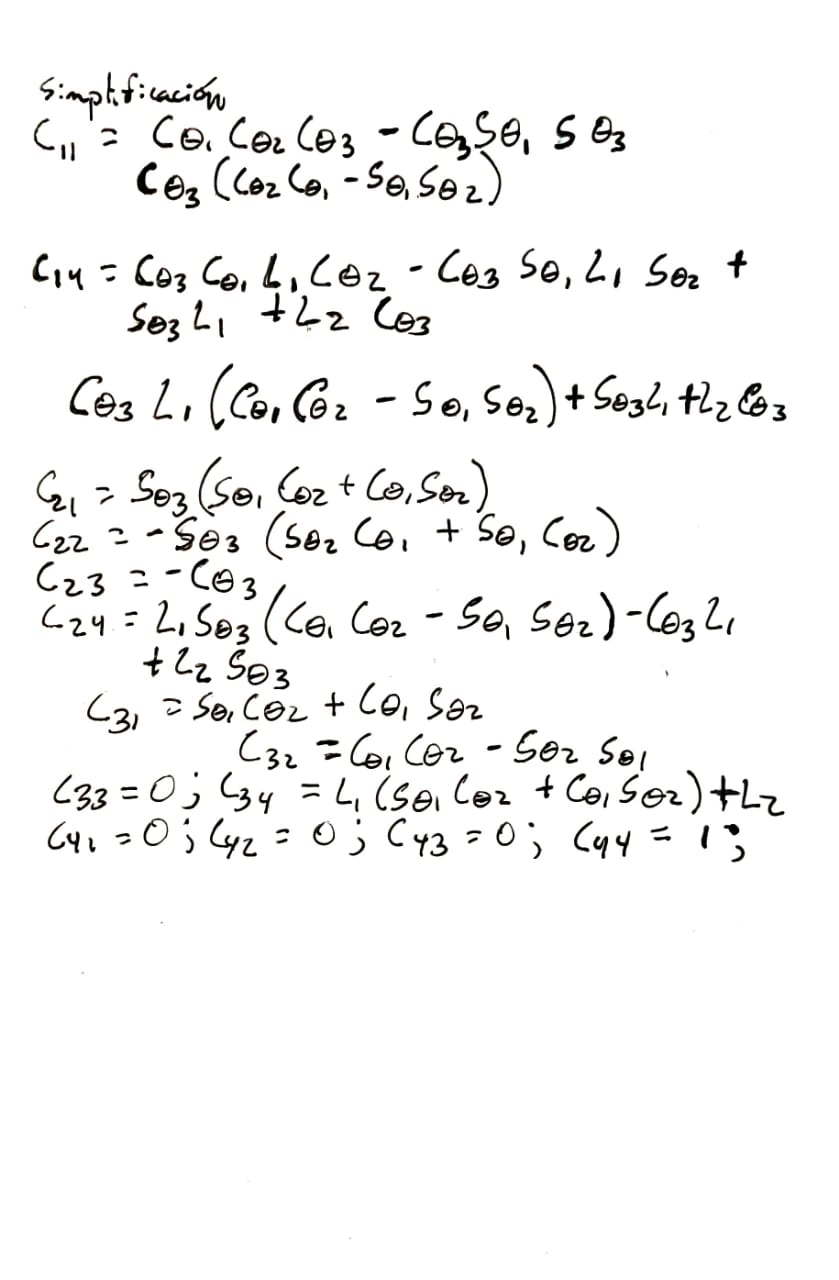 Simplificación
C11 = Cθ1 Cθ2 Cθ3 - Cθ3 Sθ1 S θ3
Cθ3 (Cθ2 Cθ1 - Sθ1 Sθ2)
C14 = Cθ3 Cθ1 L1 Cθ2 - Cθ3 Sθ1 L1 Sθ2 +
Sθ3 L1 + L2 Cθ3
Cθ3 L1 (Cθ1 Cθ2 - Sθ1 Sθ2) + Sθ3 L1 + L2 Cθ3
C21 = Sθ3 (Sθ1 Cθ2 + Cθ1 Sθ2)
C22 = - Sθ3 (Sθ2 Cθ1 + Sθ1 Cθ2)
C23 = - Cθ3
C24 = L1 Sθ3 (Cθ1 Cθ2 - Sθ1 Sθ2) - Cθ3 L1
+ L2 Sθ3
C31 = Sθ1 Cθ2 + Cθ1 Sθ2
C32 = Cθ1 Cθ2 - Sθ2 Sθ1
C33 = 0 ; C34 = L1 (Sθ1 Cθ2 + Cθ1 Sθ2) + L2
C41 = 0 ; C42 = 0 ; C43 = 0 ; C44 = 1 ;